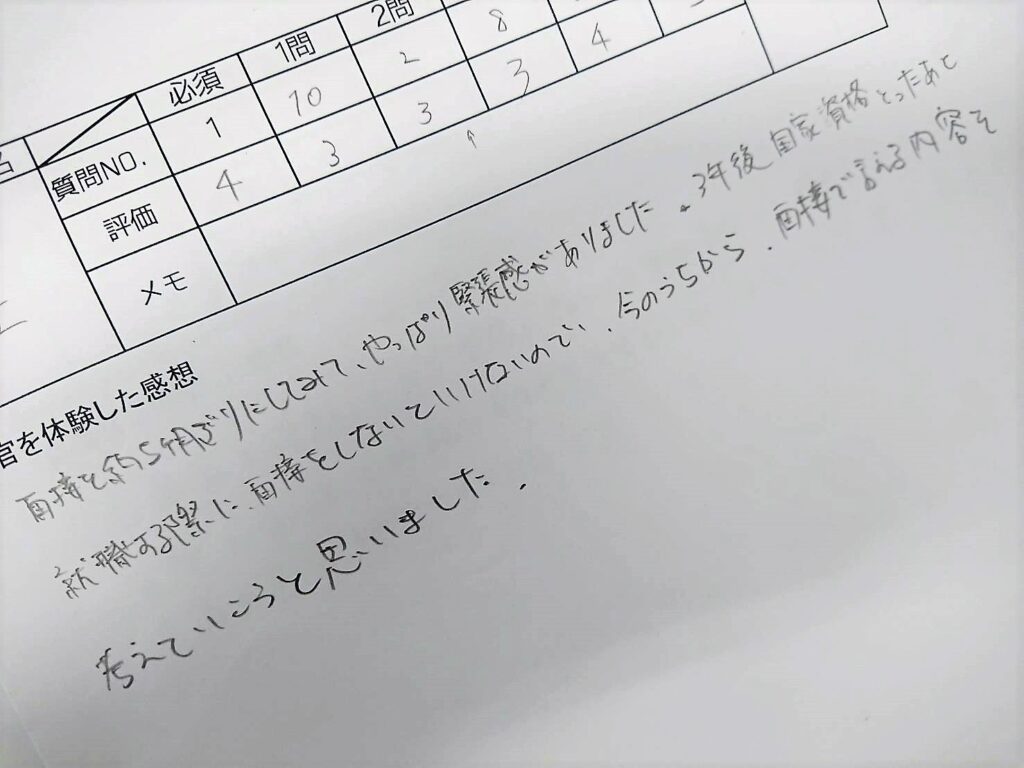 必須 1問 2問
質問NO. 1 10 2 8
評価 4 3 3 3 4
メモ
官を体験した感想
面接を約5ヶ月ぶりにしてみて、やっぱり緊張感がありました。3年後国家資格とったあと
就職する際に、面接をしないといけないので、今のうちから、面接で言える内容を
考えていこうと思いました。